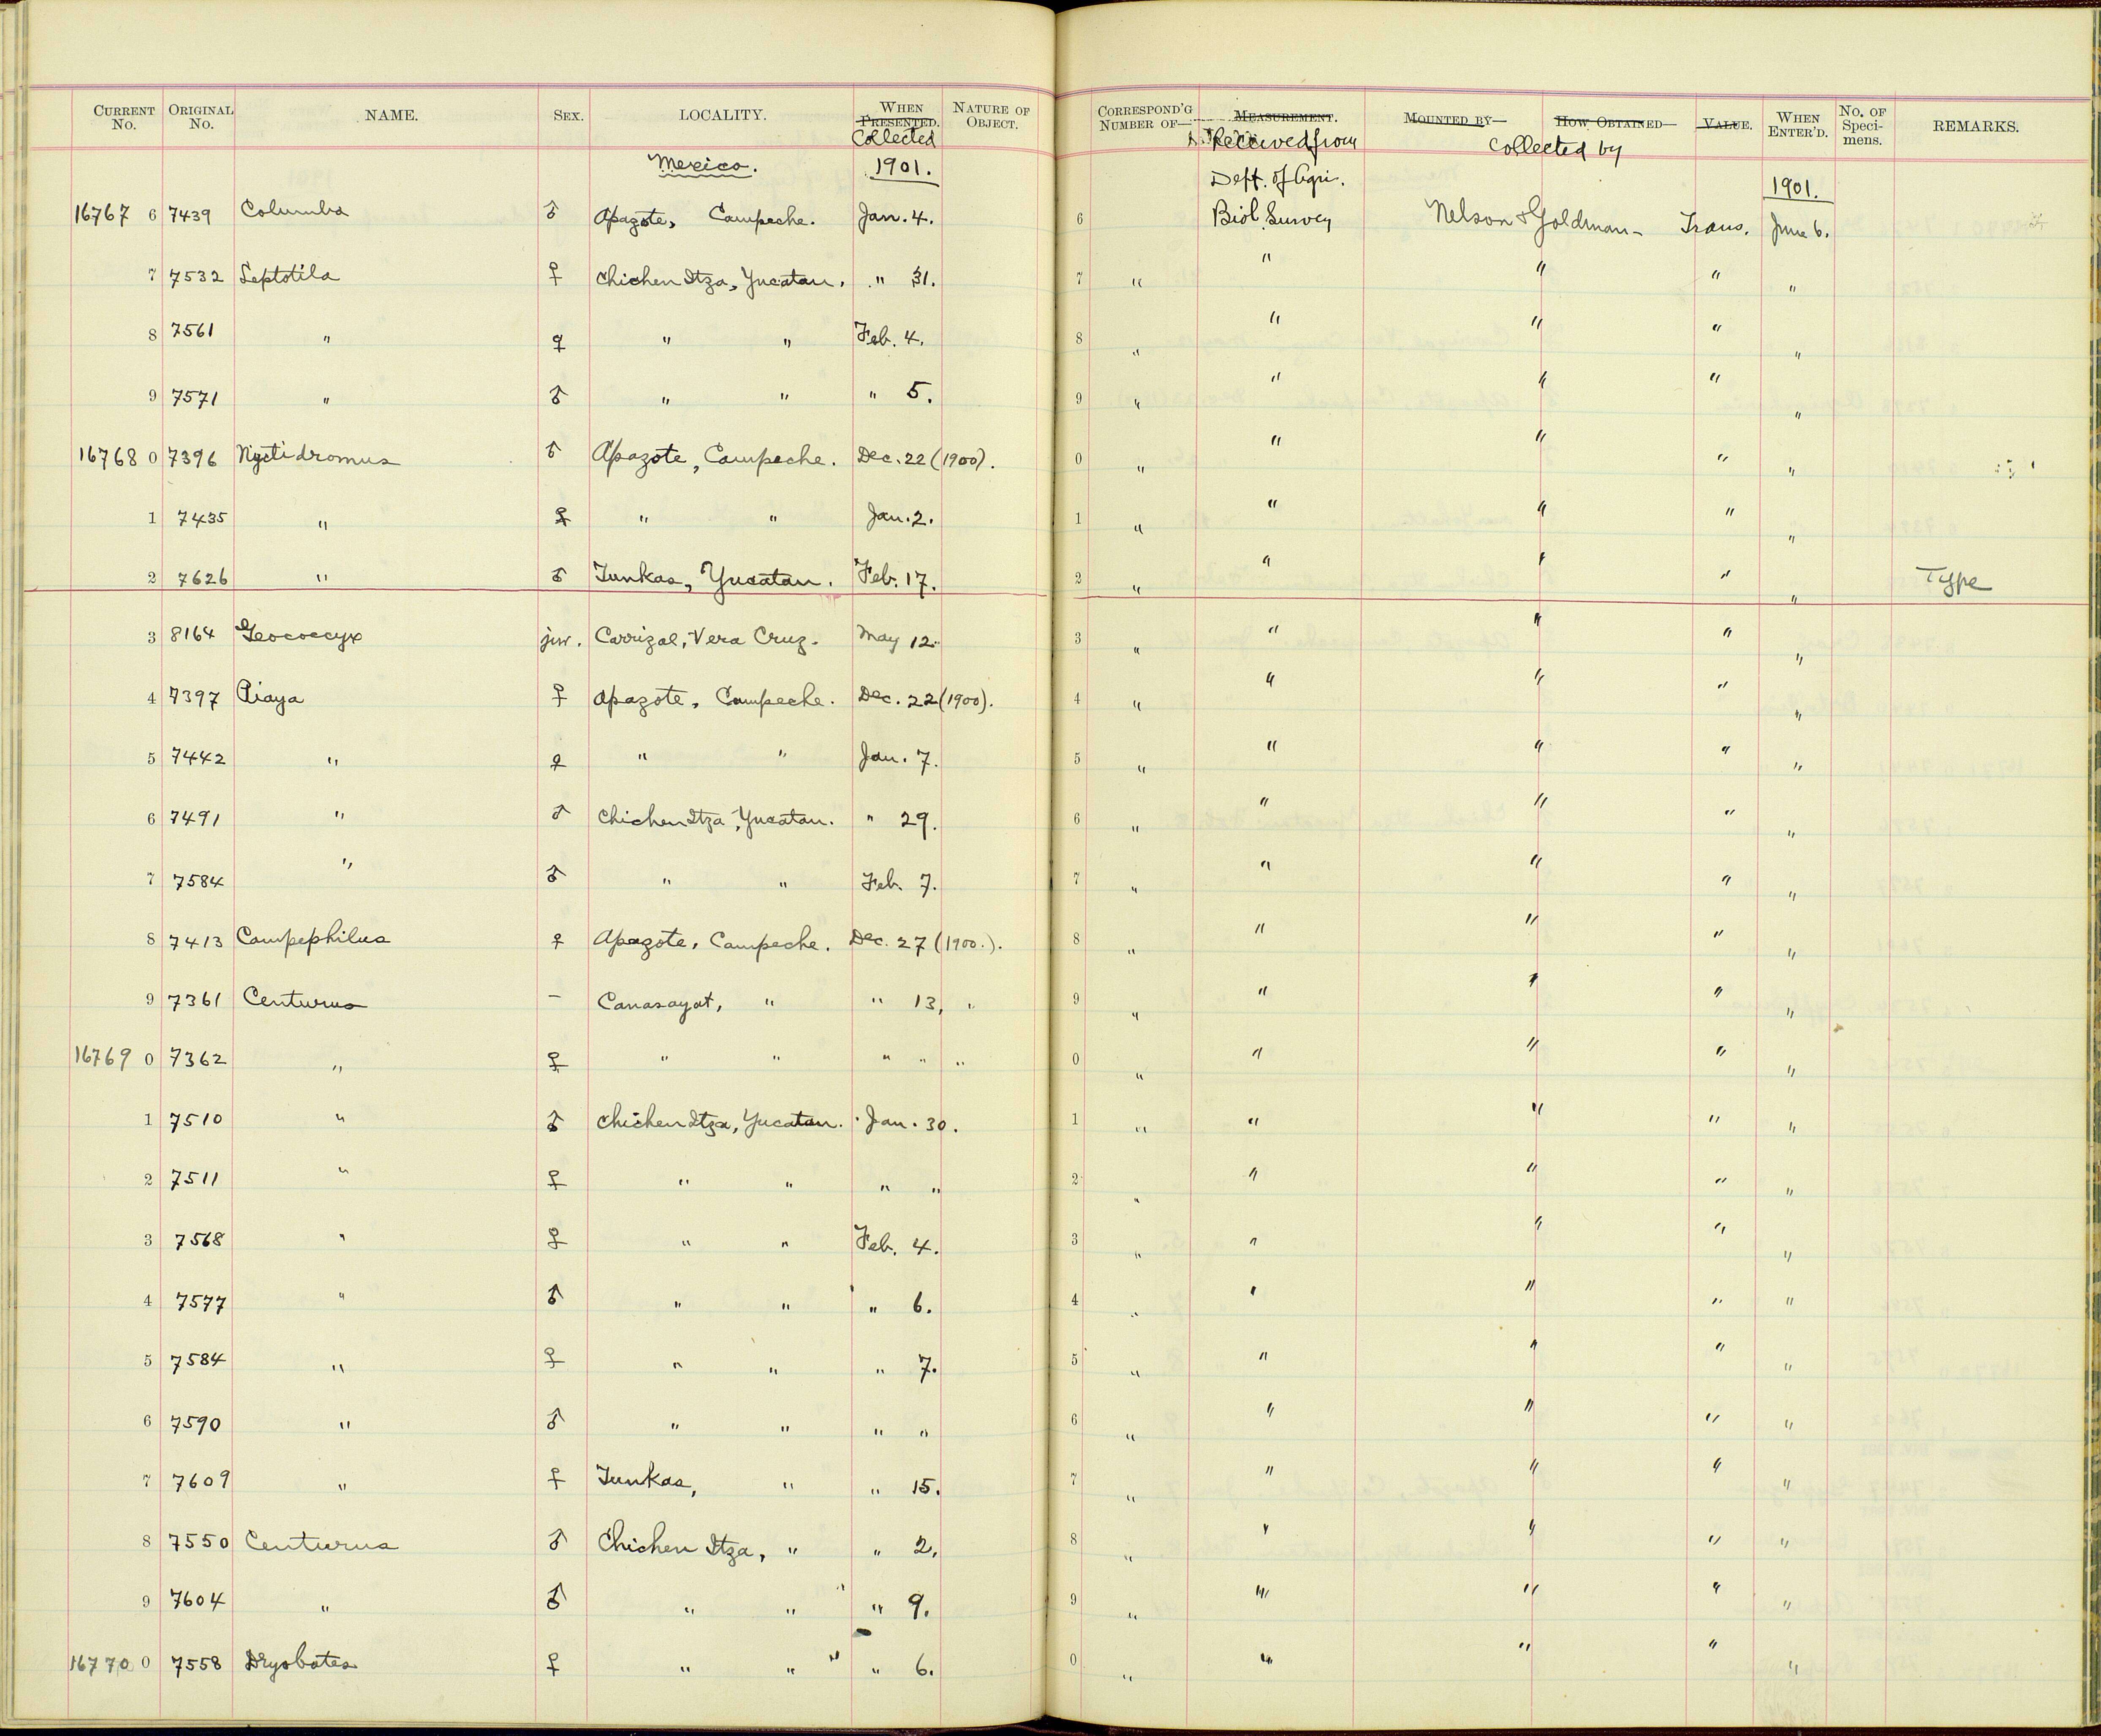 CURRENT No. ORIGINAL No. NAME. SEX. LOCALITY. WHEN PRESENTED. Collected NATURE OF OBJECT. CORRESPOND'G NUMBER OF— MEASUREMENT. Received from MOUNTED BY— HOW OBTAINED— Collected by VALUE. WHEN ENTER'D. No. OF Speci- mens. REMARKS.
Mexico. 1901. Dept. of Agri. 1901.
16767 6 7439 Columba ♂ Apazote, Campeche. Jan. 4. 6 Biol. Survey Nelson & Goldman — Trans. June 6.
7 7532 Leptotila ♀ Chichen Itza, Yucatan. " 31. 7 " " " " "
8 7561 " ♀ " " Feb. 4. 8 " " " " "
9 7571 " ♂ " " " 5. 9 " " " " "
16768 0 7396 Nyctidromus ♂ Apazote, Campeche. Dec. 22 (1900). 0 " " " " "
1 7435 " ♀ " " Jan. 2. 1 " " " " "
2 7626 " ♂ Tunkas, Yucatan. Feb. 17. 2 " " " " " Type
3 8164 Geococcyx juv. Carrizal, Vera Cruz. May 12. 3 " " " " "
4 7397 Piaya ♀ Apazote, Campeche. Dec. 22 (1900). 4 " " " " "
5 7442 " ♀ " " Jan. 7. 5 " " " " "
6 7491 " ♂ Chichen Itza, Yucatan. " 29. 6 " " " " "
7 7584 " ♂ " " Feb. 7. 7 " " " " "
8 7413 Campephilus ♀ Apazote, Campeche. Dec. 27 (1900.). 8 " " " " "
9 7361 Centurus – Canasayat, " " 13, " 9 " " " " "
16769 0 7362 " ♀ " " " " " 0 " " " " "
1 7510 " ♂ Chichen Itza, Yucatan. Jan. 30. 1 " " " " "
2 7511 " ♀ " " " " 2 " " " " "
3 7568 " ♀ " " Feb. 4. 3 " " " " "
4 7577 " ♂ " " " 6. 4 " " " " "
5 7584 " ♀ " " " 7. 5 " " " " "
6 7590 " ♂ " " " " 6 " " " " "
7 7609 " ♀ Tunkas, " " 15. 7 " " " " "
8 7550 Centurus ♂ Chichen Itza, " " 2. 8 " " " " "
9 7604 " ♂ " " " " 9. 9 " " " " "
16770 0 7558 Dryobates ♀ " " " " 6. 0 " " " " "